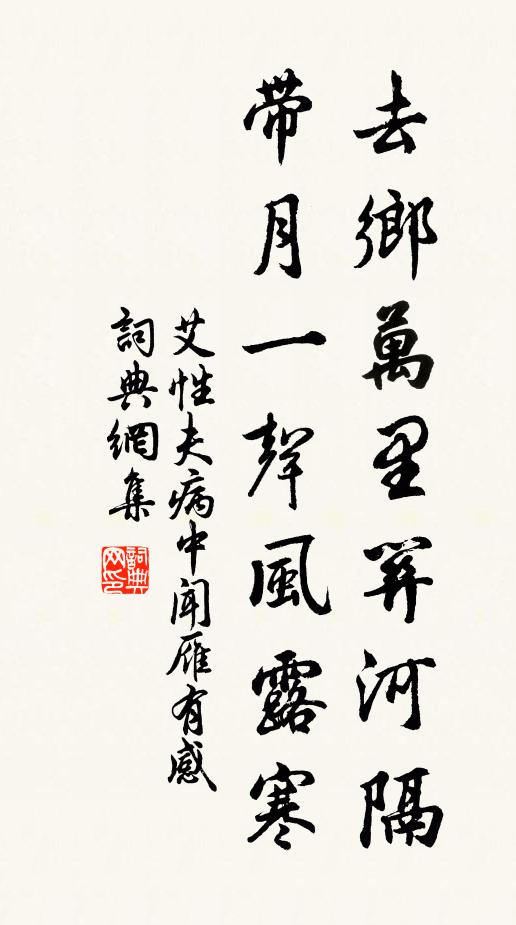 去鄉萬里關河隔
帶月一聲風露寒
艾性夫病中聞雁有感
詞典網集
詞典网印